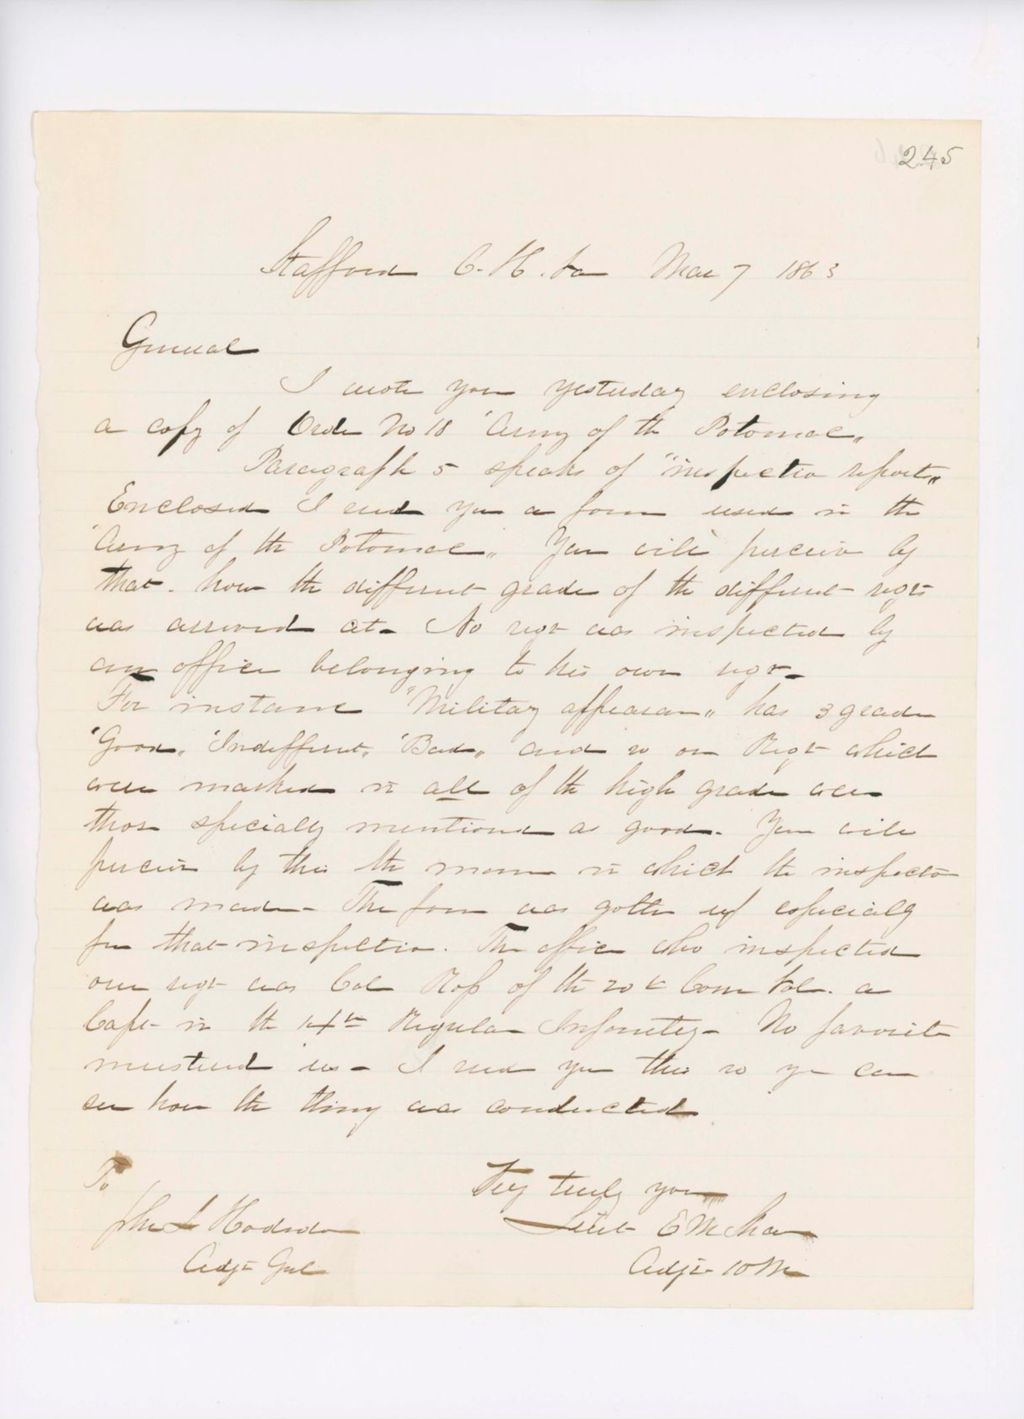 245
Stafford C.H. Va Mar 7 1863
General
I wrote you yesterday enclosing
a copy of Order No 18 "Army of the Potomac"
Paragraph 5 speaks of "inspection reports"
Enclosed I send you a form used in the
"Army of the Potomac" You will perceive by
that. how the different grade of the different regts
was arrived at - No regt was inspected by
an officer belonging to his own regt -
For instance "Military appearance" has 3 grades
"Good," "Indifferent," "Bad" and so on Regt which
were marked in all of the high grades were
those specially mentioned as good - You will
perceive by this the manner in which the inspection
was made - The form was gotten up especially
for that inspection. The officer who inspected
our regt was Col Ross of the 20th Conn Vol. a
Capt in the 14th Regular Infantry - No favorite
mustered us - I send you this so you can
see how the thing was conducted
To
Jno L Hodsdon
Adjt Genl
Very truly yours
Lieut E M Shaw
Adjt 10 Me